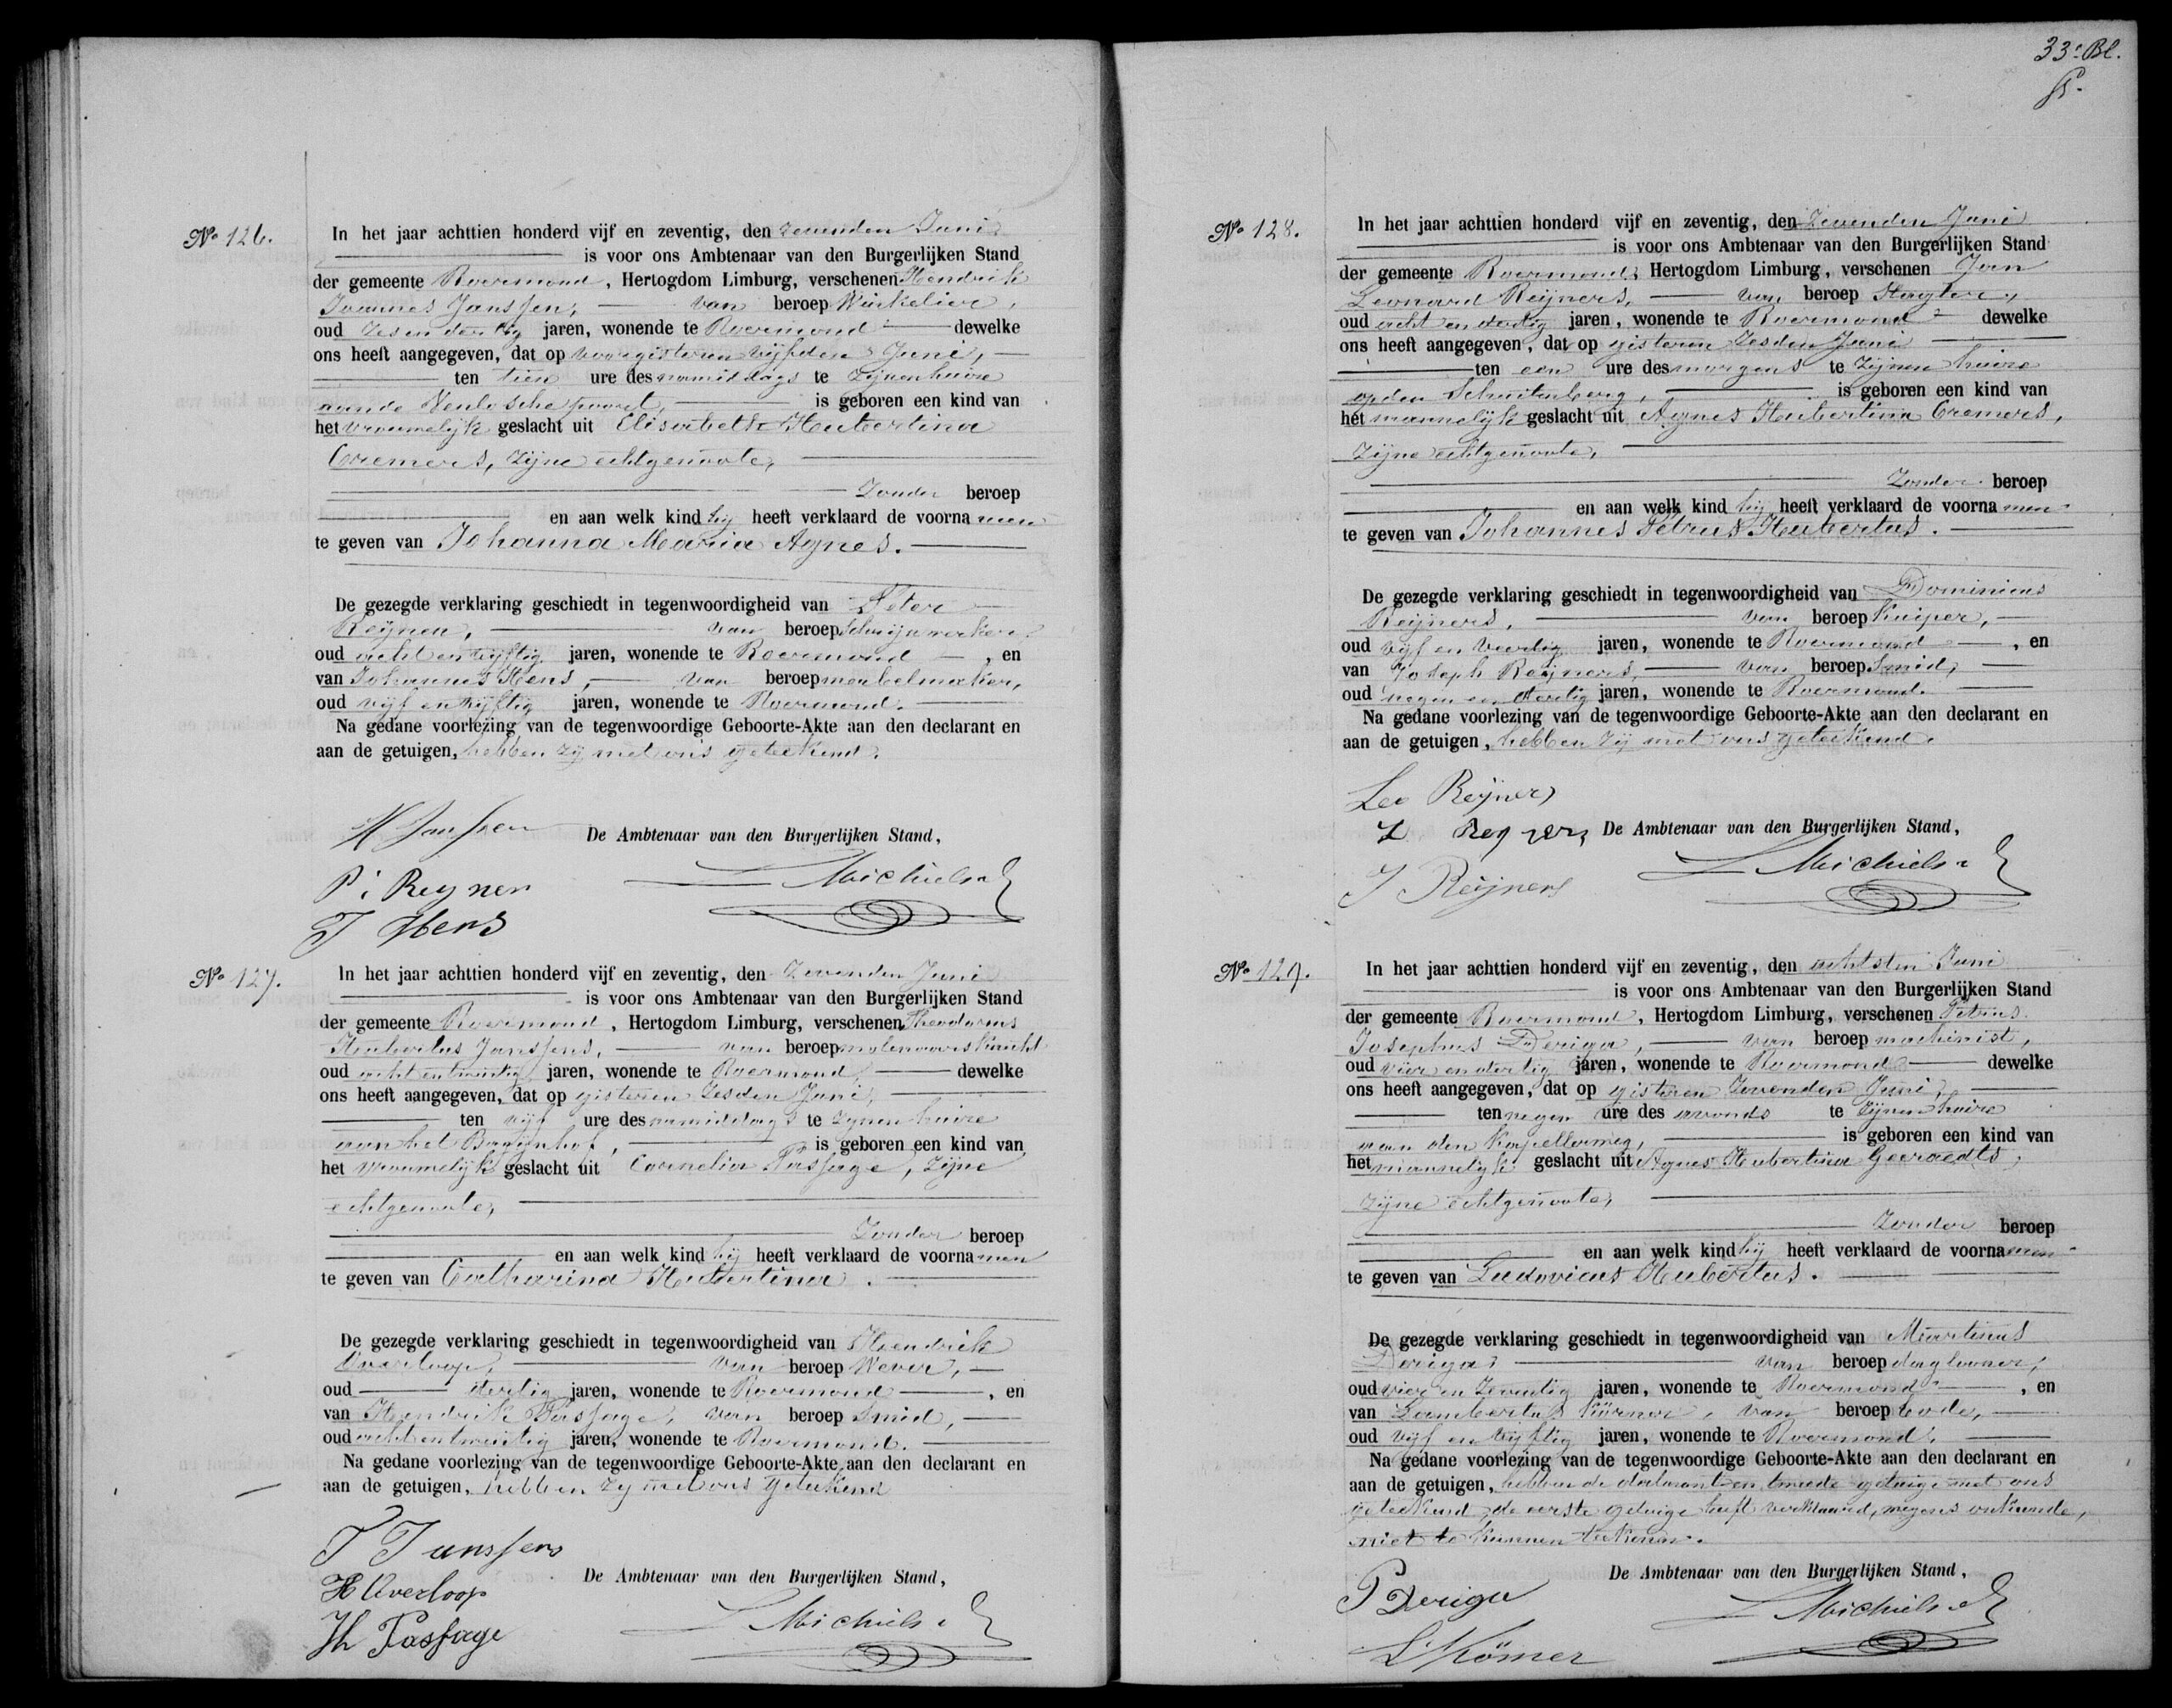 33e Bl.
No 126.
In het jaar achttien honderd vijf en zeventig, den zevenden Juni
is voor ons Ambtenaar van den Burgerlijken Stand
der gemeente Roermond, Hertogdom Limburg, verschenen Hendrik
Joannes Janssen, van beroep Winkelier,
oud zesendertig jaren, wonende te Roermond dewelke
ons heeft aangegeven, dat op voorgisteren vijfden Juni,
ten tien ure des namiddags te zijnen huize
aan de Venlosche poort, is geboren een kind van
het vrouwelijk geslacht uit Elisabeth Hubertina
Cremers, zijne echtgenoote,
Zonder beroep
en aan welk kind hij heeft verklaard de voornamen
te geven van Johanna Maria Agnes.
De gezegde verklaring geschiedt in tegenwoordigheid van Peter
Reijnen, van beroep Schrijnwerker,
oud acht en vijftig jaren, wonende te Roermond, en
van Johannes Hens, van beroep meubelmaker,
oud vijf en vijftig jaren, wonende te Roermond.
Na gedane voorlezing van de tegenwoordige Geboorte-Akte aan den declarant en
aan de getuigen, hebben zij met ons geteekend.
H Janssen
De Ambtenaar van den Burgerlijken Stand,
P: Reynen
Michiels
J Hens
No 127.
In het jaar achttien honderd vijf en zeventig, den Zevenden Juni
is voor ons Ambtenaar van den Burgerlijken Stand
der gemeente Roermond, Hertogdom Limburg, verschenen Theodorus
Hubertus Janssens, van beroep molenaarsknecht
oud acht en twintig jaren, wonende te Roermond, dewelke
ons heeft aangegeven, dat op gisteren Zesden Juni,
ten vijf ure des namiddags te zijnen huize
aan het Bagijnhof, is geboren een kind van
het vrouwelijk geslacht uit Cornelia Passage, zijne
echtgenoote,
Zonder beroep
en aan welk kind hij heeft verklaard de voornamen
te geven van Catharina Hubertina.
De gezegde verklaring geschiedt in tegenwoordigheid van Hendrik
Overloop, van beroep Wever,
oud dertig jaren, wonende te Roermond, en
van Hendrik Passage, van beroep Smid,
oud acht en twintig jaren, wonende te Roermond.
Na gedane voorlezing van de tegenwoordige Geboorte-Akte aan den declarant en
aan de getuigen, hebben zij met ons geteekend
T Janssens
De Ambtenaar van den Burgerlijken Stand,
H Overloop
Michiels
Hh Passage
No 128.
In het jaar achttien honderd vijf en zeventig, den Zevenden Juni
is voor ons Ambtenaar van den Burgerlijken Stand
der gemeente Roermond, Hertogdom Limburg, verschenen Jean
Leonard Reijners, van beroep Slagter,
oud acht en dertig jaren, wonende te Roermond dewelke
ons heeft aangegeven, dat op gisteren Zesden Juni
ten een ure des morgens te zijnen huize
op den Schuitenberg, is geboren een kind van
het mannelijk geslacht uit Agnes Hubertina Cremers,
zijne echtgenoote,
Zonder beroep
en aan welk kind hij heeft verklaard de voornamen
te geven van Johannes Petrus Hubertus.
De gezegde verklaring geschiedt in tegenwoordigheid van Dominicus
Reijners, van beroep Kuiper,
oud vijf en veertig jaren, wonende te Roermond, en
van Joseph Reijners, van beroep Smid,
oud negen en dertig jaren, wonende te Roermond.
Na gedane voorlezing van de tegenwoordige Geboorte-Akte aan den declarant en
aan de getuigen, hebben zij met ons geteekend.
Leo Reijners
De Ambtenaar van den Burgerlijken Stand,
Michiels
J Reijners
No 129.
In het jaar achttien honderd vijf en zeventig, den achtsten Juni
is voor ons Ambtenaar van den Burgerlijken Stand
der gemeente Roermond, Hertogdom Limburg, verschenen Petrus
Josephus Deriga, van beroep machinist,
oud vier en dertig jaren, wonende te Roermond dewelke
ons heeft aangegeven, dat op gisteren Zevenden Juni,
ten negen ure des avonds te zijnen huize
aan den Kapellerweg, is geboren een kind van
het mannelijk geslacht uit Agnes Hubertina Geeraedts,
zijne echtgenoote,
Zonder beroep
en aan welk kind hij heeft verklaard de voornamen
te geven van Ludovicus Hubertus.
De gezegde verklaring geschiedt in tegenwoordigheid van Martinus
Deriga, van beroep daglooner,
oud vier en Zeventig jaren, wonende te Roermond, en
van Lambertus Körner, van beroep bode,
oud vijf en vijftig jaren, wonende te Roermond.
Na gedane voorlezing van de tegenwoordige Geboorte-Akte aan den declarant en
aan de getuigen, hebben de declarant en tweede getuige met ons
geteekend, de eerste getuige heeft verklaard, wegens onkunde,
niet te kunnen teekenen.
De Ambtenaar van den Burgerlijken Stand,
P Deriga
Michiels
L Körner